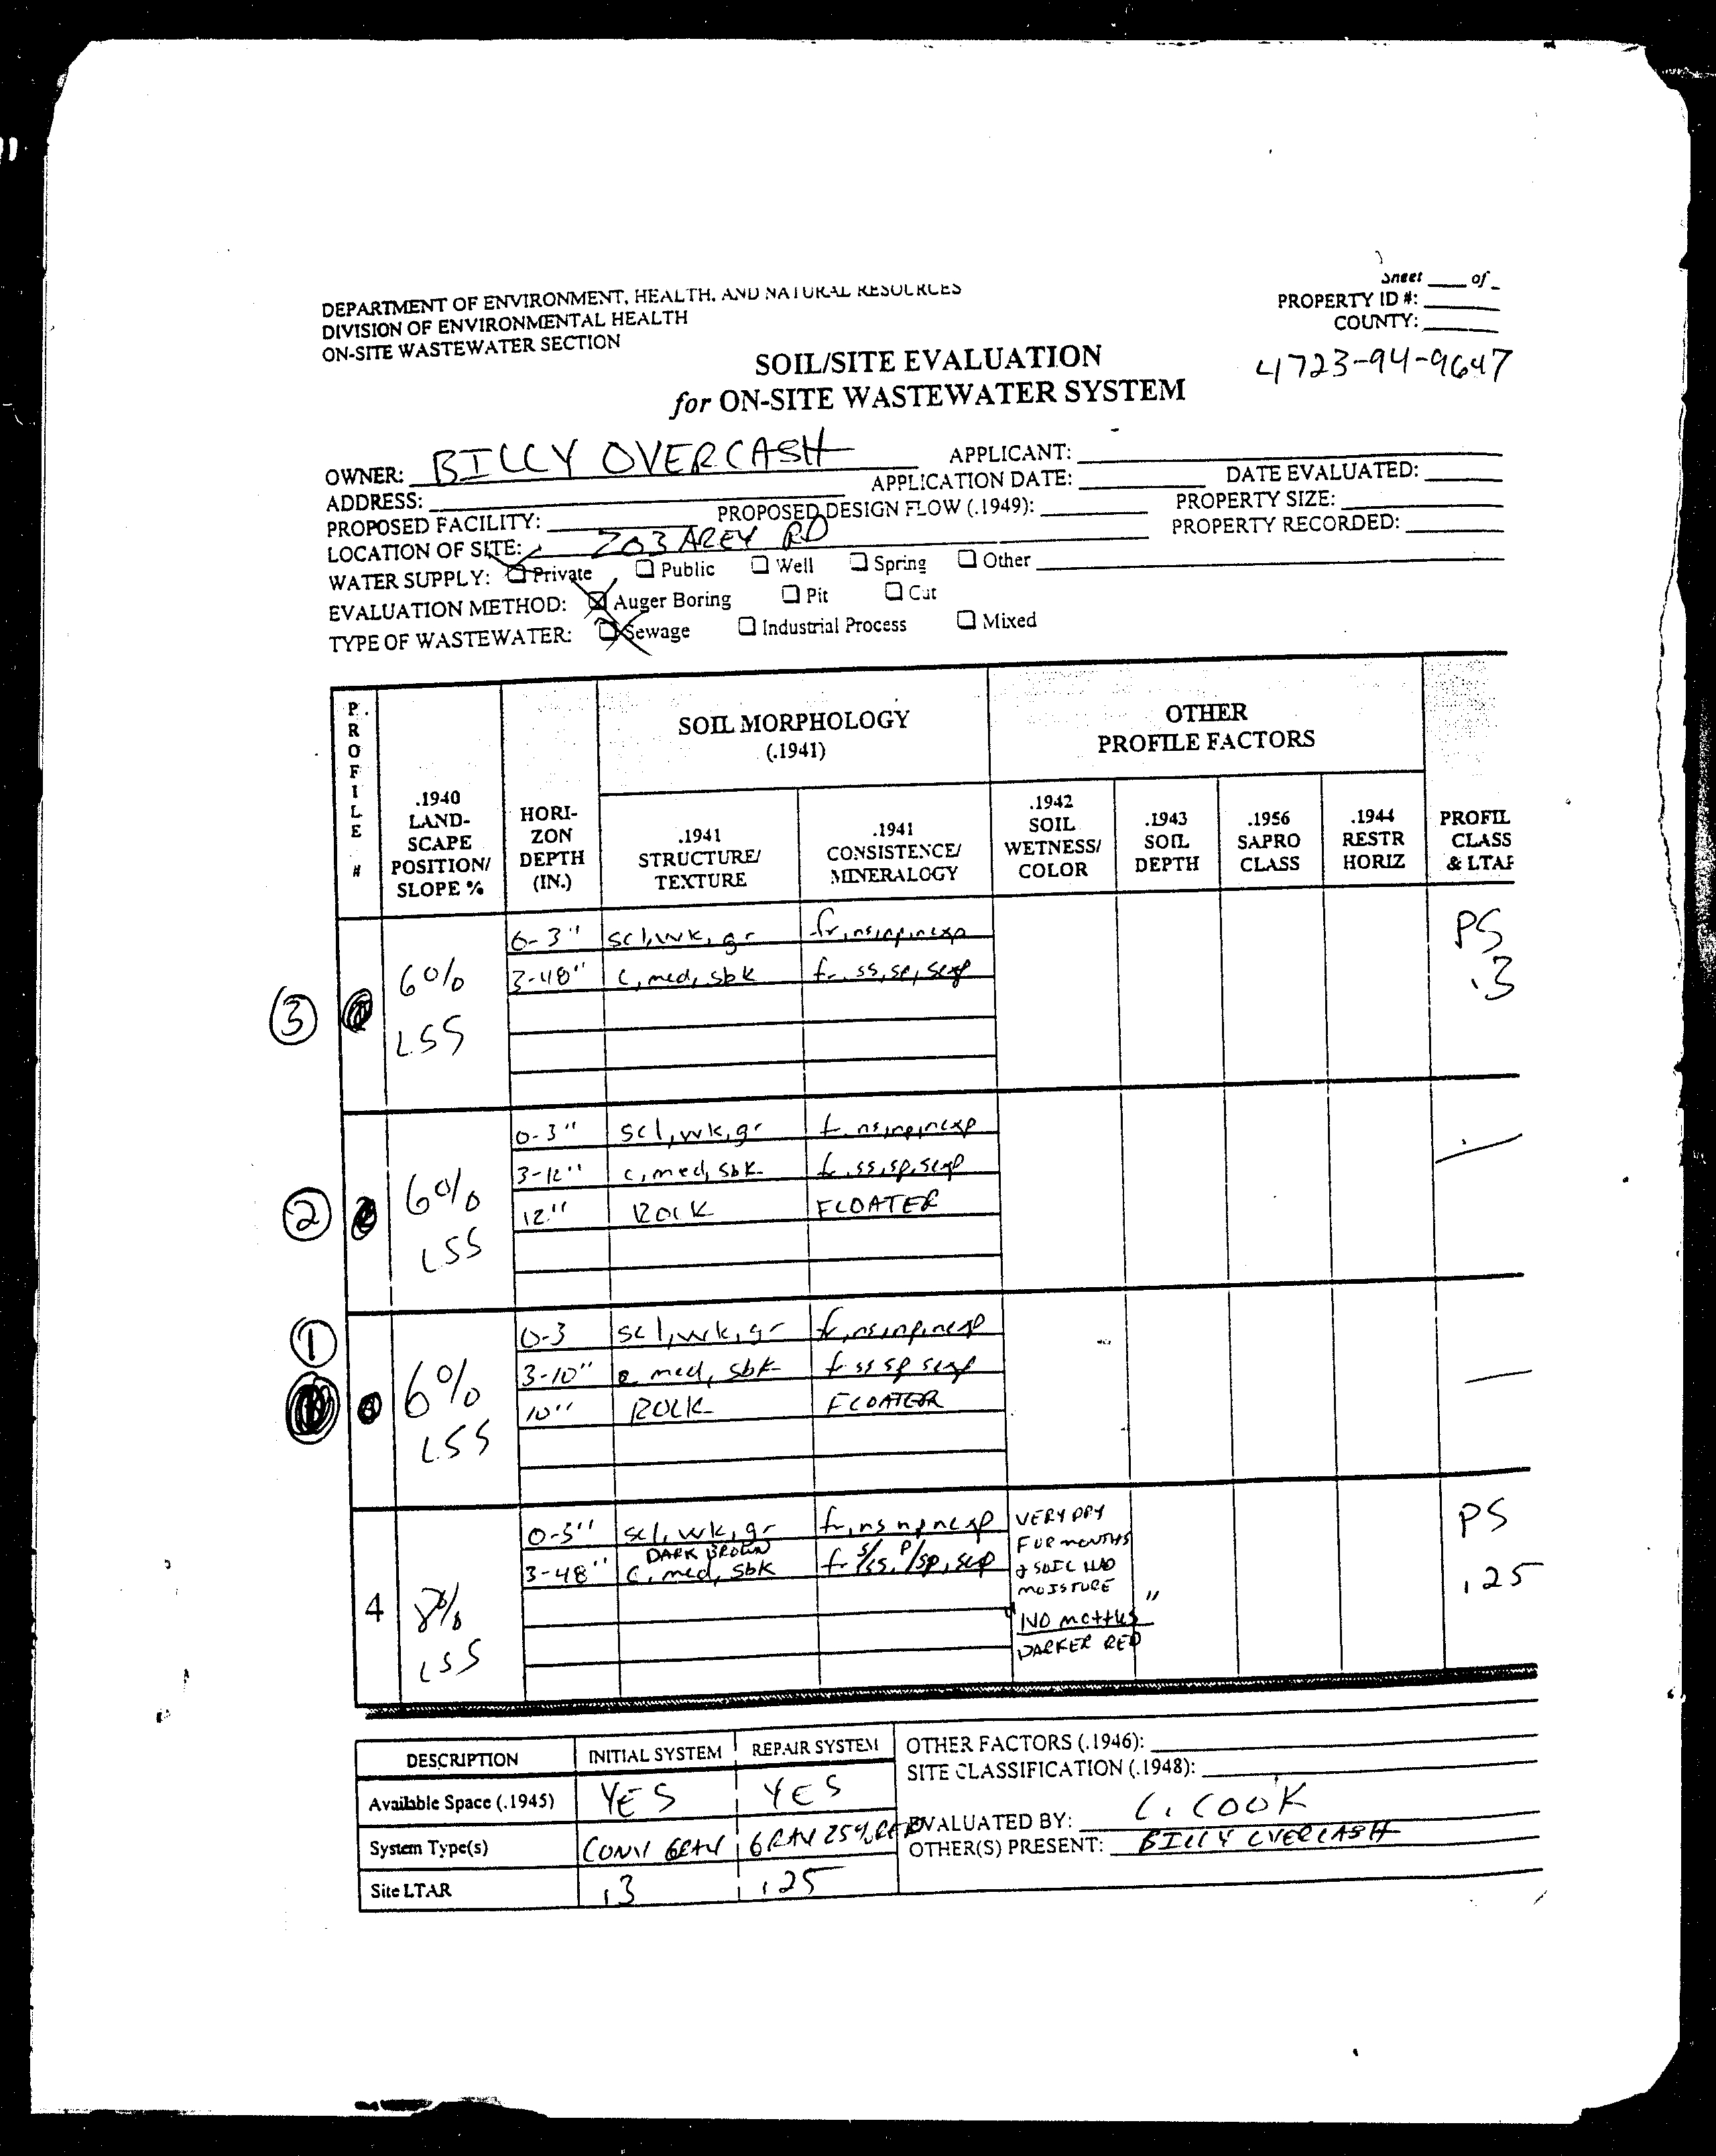 Sheet ____ of _
DEPARTMENT OF ENVIRONMENT, HEALTH, AND NATURAL RESOURCES
PROPERTY ID #:
DIVISION OF ENVIRONMENTAL HEALTH
COUNTY:
ON-SITE WASTEWATER SECTION
4723-94-9647
SOIL/SITE EVALUATION
for ON-SITE WASTEWATER SYSTEM
OWNER: BILLY OVERCASH APPLICANT:
ADDRESS: APPLICATION DATE: DATE EVALUATED:
PROPOSED FACILITY: PROPOSED DESIGN FLOW (.1949): PROPERTY SIZE:
LOCATION OF SITE: 203 AREY RD PROPERTY RECORDED:
WATER SUPPLY: Private Public Well Spring Other
EVALUATION METHOD: Auger Boring Pit Cut
TYPE OF WASTEWATER: Sewage Industrial Process Mixed
PROFILE #
.1940 LAND-SCAPE POSITION/ SLOPE %
HORI-ZON DEPTH (IN.)
SOIL MORPHOLOGY (.1941)
.1941 STRUCTURE/ TEXTURE
.1941 CONSISTENCE/ MINERALOGY
OTHER PROFILE FACTORS
.1942 SOIL WETNESS/ COLOR
.1943 SOIL DEPTH
.1956 SAPRO CLASS
.1944 RESTR HORIZ
PROFIL CLASS & LTAR
3 6% LSS
0-3" scl, wk, gr fr, ns, np, nexp
3-48" c, med, sbk fr, ss, sp, sexp
PS .3
2 6% LSS
0-3" scl, wk, gr fr, ns, np, nexp
3-12" c, med, sbk fr, ss, sp, sexp
12" ROCK FLOATER
1 6% LSS
0-3 scl, wk, gr fr, ns, np, nexp
3-10" c med, sbk fr ss sp sexp
10" ROCK FLOATER
4 8% LSS
0-3" scl, wk, gr fr, ns np nexp
DARK BROWN
3-48" c, med, sbk fr s/ss, p/sp, sexp
VERY DRY
FOR MONTHS
& SOIL HAD
MOISTURE
"NO mottles"
DARKER RED
PS .25
DESCRIPTION INITIAL SYSTEM REPAIR SYSTEM
Available Space (.1945) YES YES
System Type(s) CONV GRAV GRAV 25% RED
Site LTAR .3 .25
OTHER FACTORS (.1946):
SITE CLASSIFICATION (.1948):
EVALUATED BY: C. COOK
OTHER(S) PRESENT: BILLY OVERCASH